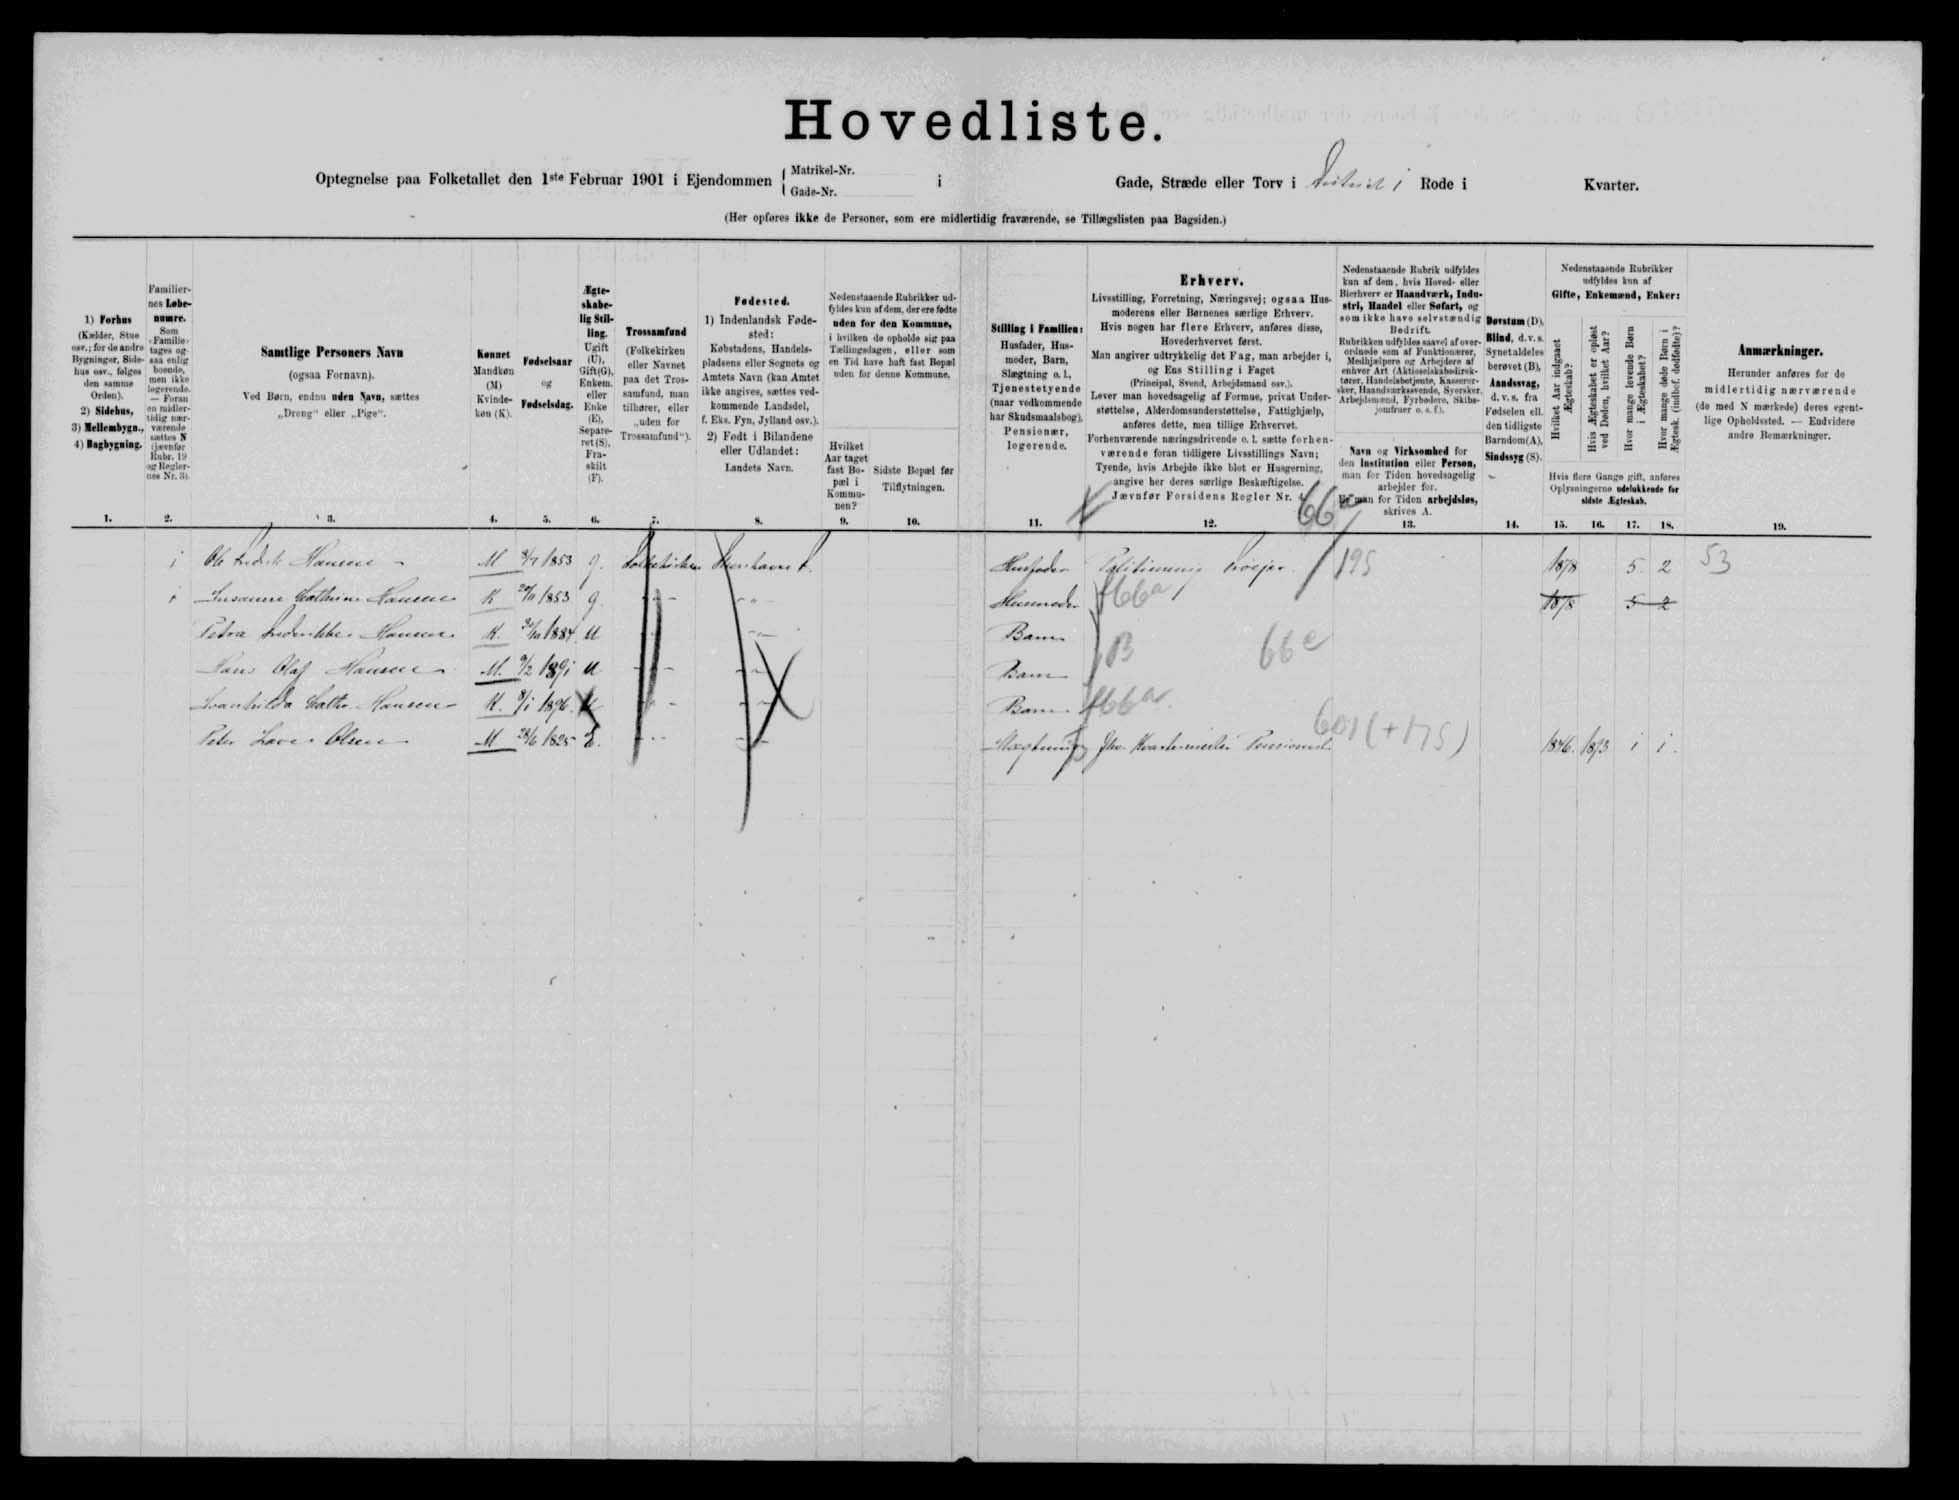 Hovedliste.
Optegnelse paa Folketallet den 1ste Februar 1901 i Ejendommen { Matrikel-Nr. Gade-Nr. i Gade, Stræde eller Torv i District i Rode i Kvarter.
(Her opføres ikke de Personer, som ere midlertidig fraværende, se Tillægslisten paa Bagsiden.)
1) Forhus
(Kælder, Stue
osv.; for de andre
Bygninger, Side-
hus osv., følges
den samme
Orden).
2) Sidehus,
3) Mellembygn.,
4) Bagbygning.
1.
Familier-
nes Løbe-
numre.
Som
»Familie«
tages og-
saa enlig
boende,
men ikke
logerende.
— Foran
en midler-
tidig nær-
værende
sættes N
(jævnfør
Rubr. 19
og Regler-
nes Nr. 3).
2.
Samtlige Personers Navn
(ogsaa Fornavn).
Ved Børn, endnu uden Navn, sættes
„Dreng“ eller „Pige“.
3.
Kønnet
Mandkøn
(M)
Kvinde-
køn (K).
4.
Fødselsaar
og
Fødselsdag.
5.
Ægte-
skabe-
lig Stil-
ling.
Ugift
(U),
Gift(G),
Enkem.
eller
Enke
(E),
Separe-
ret (S),
Fra-
skilt
(F).
6.
Trossamfund
(Folkekirken
eller Navnet
paa det Tros-
samfund, man
tilhører, eller
„uden for
Trossamfund“).
7.
Fødested.
1) Indenlandsk Føde-
sted:
Købstadens, Handels-
pladsens eller Sognets og
Amtets Navn (kan Amtet
ikke angives, sættes ved-
kommende Landsdel,
f. Eks. Fyn, Jylland osv.).
2) Født i Bilandene
eller Udlandet:
Landets Navn.
8.
Nedenstaaende Rubrikker ud-
fyldes kun af dem, der ere fødte
uden for den Kommune,
i hvilken de opholde sig paa
Tællingsdagen, eller som
en Tid have haft fast Bopæl
uden for denne Kommune.
Hvilket
Aar taget
fast Bo-
pæl i
Kommu-
nen?
9.
Sidste Bopæl før
Tilflytningen.
10.
Stilling i Familien:
Husfader, Hus-
moder, Barn,
Slægtning o. l.,
Tjenestetyende
(naar vedkommende
har Skudsmaalsbog),
Pensionær,
logerende.
11.
Erhverv.
Livsstilling, Forretning, Næringsvej; ogsaa Hus-
moderens eller Børnenes særlige Erhverv.
Hvis nogen har flere Erhverv, anføres disse,
Hovederhvervet først.
Man angiver udtrykkelig det Fag, man arbejder i,
og Ens Stilling i Faget
(Principal, Svend, Arbejdsmand osv.).
Lever man hovedsagelig af Formue, privat Under-
støttelse, Alderdomsunderstøttelse, Fattighjælp,
anføres dette, men tillige Erhvervet.
Forhenværende næringsdrivende o. l. sætte forhen-
værende foran tidligere Livsstillings Navn;
Tyende, hvis Arbejde ikke blot er Husgerning,
angive her deres særlige Beskæftigelse.
Jævnfør Forsidens Regler Nr. 4.
12.
Nedenstaaende Rubrik udfyldes
kun af dem, hvis Hoved- eller
Bierhverv er Haandværk, Indu-
stri, Handel eller Søfart, og
som ikke have selvstændig
Bedrift.
Rubrikken udfyldes saavel af over-
ordnede som af Funktionærer,
Medhjælpere og Arbejdere af
enhver Art (Aktieselskabsdirek-
tører, Handelsbetjente, Kasserer-
sker, Haandværkssvende, Syersker,
Arbejdsmænd, Fyrbødere, Skibs-
jomfruer o. s. f.).
Navn og Virksomhed for
den Institution eller Person,
man for Tiden hovedsagelig
arbejder for.
Er man for Tiden arbejdsløs,
skrives A.
13.
Døvstum (D),
Blind, d. v. s.
Synet aldeles
berøvet (B),
Aandssvag,
d. v. s. fra
Fødselen ell.
den tidligste
Barndom(A),
Sindssyg (S).
14.
Nedenstaaende Rubrikker
udfyldes kun af
Gifte, Enkemænd, Enker:
Hvilket Aar indgaaet Ægteskab?
Hvis Ægteskabet er opløst ved Døden, hvilket Aar?
Hvor mange levende Børn i Ægteskabet?
Hvor mange døde Børn i Ægtesk. (indbef. dødfødte)?
Hvis flere Gange gift, anføres
Oplysningerne udelukkende for
sidste Ægteskab.
15. 16. 17. 18.
Anmærkninger.
Herunder anføres for de
midlertidig nærværende
(de med N mærkede) deres egent-
lige Opholdssted. — Endvidere
andre Bemærkninger.
19.
66e
i Ole Fredrik Hansen M 1853 g. Folkekirken Thorshavn Husfader 195 1878 5. 2 53
Susanne Cathrine Hansen K 1853 g. Husmoder 66a 1878 5 2
Petra Fredrikke Hansen K. 1884 U Barn
Hans Olaf Hansen M. 9/2 1891 U Barn B 66e
Svanhilda Cathr. Hansen K. 8/1 1896. U Barn 66a
Peter Olsen M 28/6 1825 E. Slægtning fhv. Pensionist 601 (+175) 1846. 1873 i i.